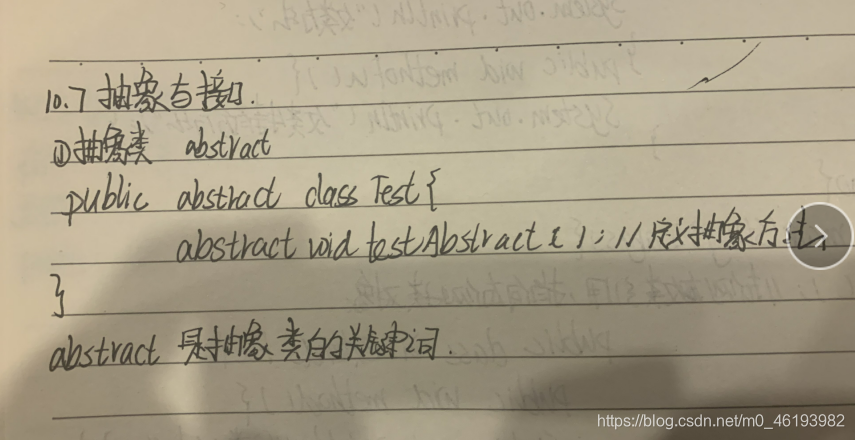 10.7 抽象与接口.
①抽象类 abstract
public abstract class Test{
abstract void testAbstract();//定义抽象方法
}
abstract 是抽象类的关键词.
https://blog.csdn.net/m0_46193982